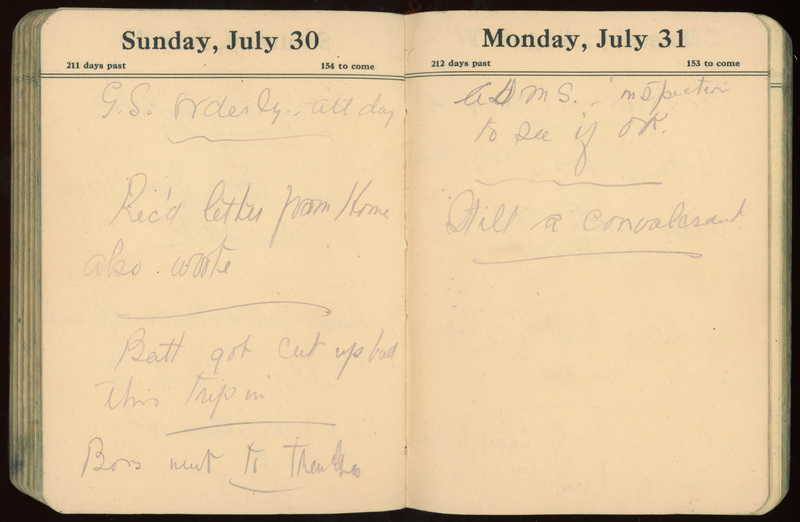 Sunday, July 30
211 days past 154 to come
G.S. orderly. all day
Rec'd letter from Home
also wrote
Batt got cut up bad
this trip in
Boys went to Trenches
Monday, July 31
212 days past 153 to come
A D M S. inspection
to see if OK.
Still a convalesant